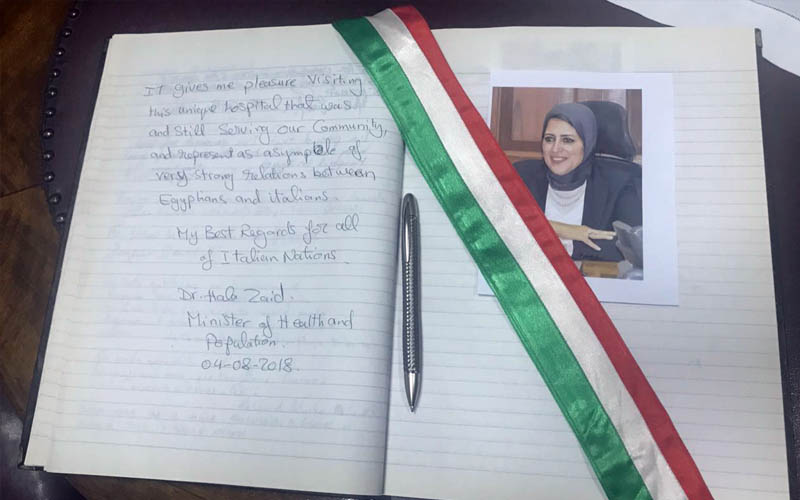 IT gives me pleasure Visiting
this unique hospital that was
and still Serving our Community,
and represent as a symptole of
very strong relations between
Egyptians and italians.
My Best Regards for all
of Italian Nations.
Dr. Hala Zaid.
Minister of Health and
Population.
04-08-2018.